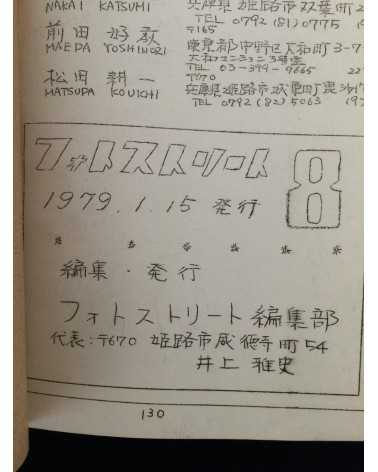 NAKAI KATSUMI 兵庫県姫路市双葉町
TEL 0792 (81) 0775
〒165
前田 好毅 東京都中野区大和町3-7
MAEDA YOSHINORI 大和
TEL 03-399-9665
〒670
松田 耕一 兵庫県姫路市城東町
MATSUDA KOUICHI TEL 0792 (82) 5063
フォトストリート 8
1979.1.15 発行
* * * * * *
編集・発行
フォトストリート編集部
代表:〒670 姫路市威徳寺町54
井上 雅史
130